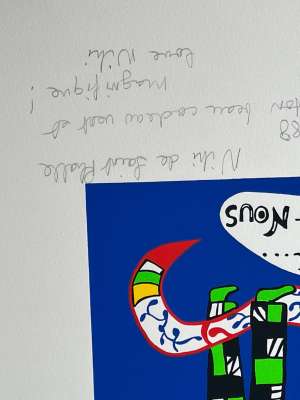 Niki de Saint Phalle
88
ton beau cadeau
magnifique !
Love Niki
-NOUS
....